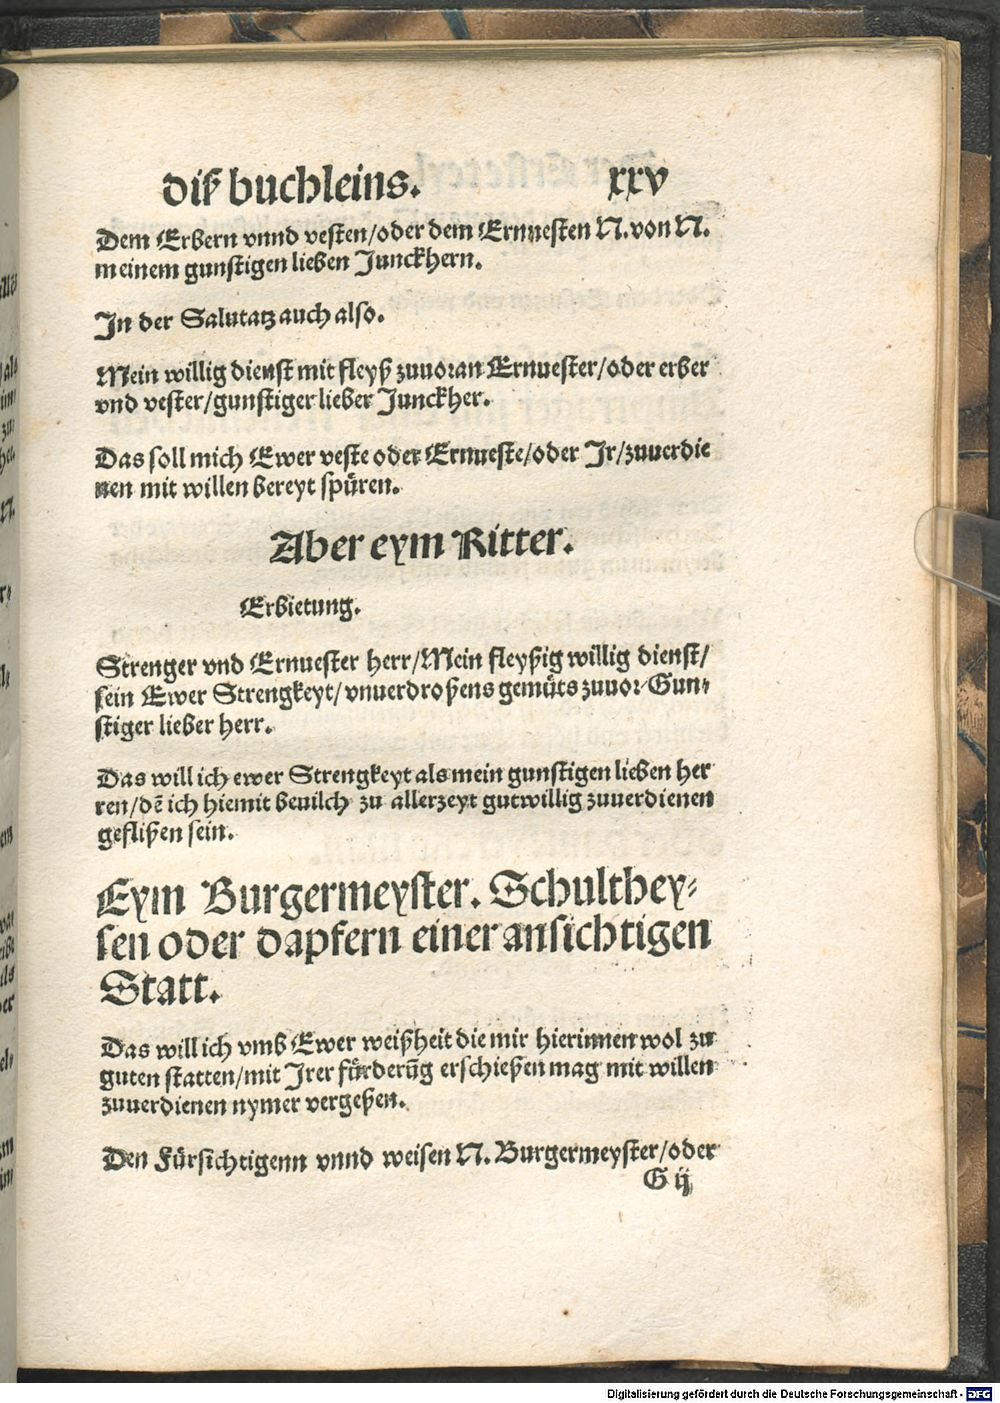 diß buchleins. xxv
Dem Erbern vnnd vesten/oder dem Ernuesten N. von N.
meinem gunstigen lieben Junckhern.
In der Salutatz auch also.
Mein willig dienst mit fleyß zuuoran Ernuester/oder erber
vnd vester/gunstiger lieber Junckher.
Das soll mich Ewer veste oder Ernueste/oder Jr/zuuerdie
nen mit willen bereyt spüren.
Aber eym Ritter.
Erbietung.
Strenger vnd Ernuester herr/Mein fleyßig willig dienst/
sein Ewer Strengkeyt/vnuerdroßens gemüts zuuor/Gun⸗
stiger lieber herr.
Das will ich ewer Strengkeyt als mein gunstigen lieben her
ren/dē ich hiemit beuilch zu allerzeyt gutwillig zuuerdienen
geflißen sein.
Eym Burgermeyster. Schulthey⸗
sen oder dapfern einer ansichtigen
Statt.
Das will ich vmb Ewer weißheit die mir hierinnen wol zu
guten statten/mit Jrer förderūg erschießen mag mit willen
zuuerdienen nymer vergeßen.
Den Fürsichtigenn vnnd weisen N. Burgermeyster/oder
G ij
Digitalisierung gefördert durch die Deutsche Forschungsgemeinschaft - DFG